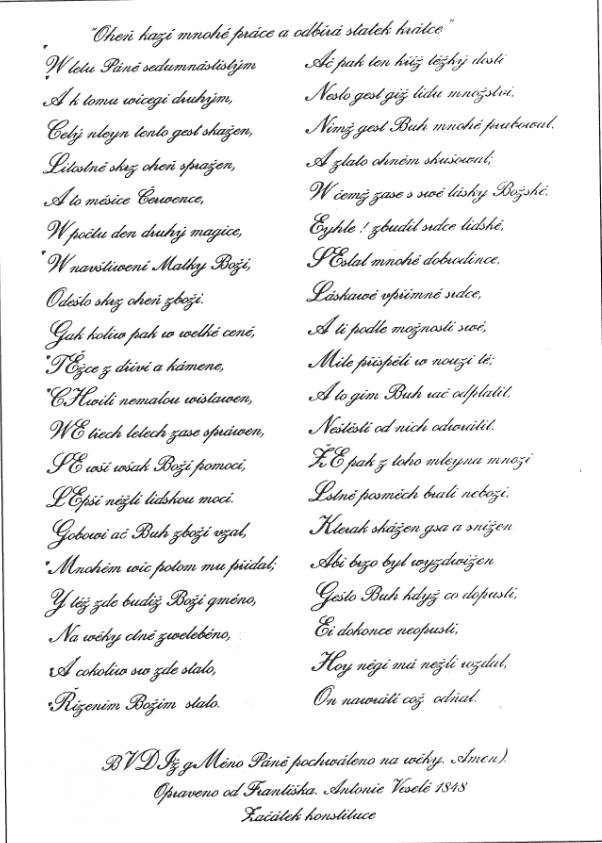 "Oheň kazí mnohé práce a odbírá statek krátce"
W letu Páně sedumnástistým
A k tomu wicegi druhým,
Celý mleyn tento gest skažen,
Litostně skrz oheň spražen,
A to měsíce Července,
W počtu den druhý magice,
W nawštiwení Matky Boží,
Odešlo skrz oheň zboží.
Gak koliw pak w welké ceně,
TĚžce z dříví a kámene,
CHwili nemalou wistawen,
WE třech letech zase spráwen,
SE wší wšak Boží pomocí,
LEpší něžli lidskou mocí.
Gobowi ač Buh zboží vzal,
Mnohém wic potom mu přidal;
Y též zde budiž Boží gméno,
Na wěky ctně zwelebéno,
A cokoliw sw zde stalo,
Řízením Božím stalo.
Ač pak ten kříž těžký dosti
Neslo gest giž lidu množství,
Nimž gest Buh mnohé prubowal.
A zlato ohném skušowal;
W čemž zase s swé lásky Božské.
Eyhle! zbudil srdce lidské,
SEslal mnohé dobrodince,
Láskawé vpřímné srdce,
A ti podle možnosti swé,
Mile přispěli w nouzi té;
A to gim Buh rač odplatit,
Neštěstí od nich odwrátit.
ŽE pak z toho mleyna mnozí
Lstně posměch brali nebozí.
Kterak skážen gsa a snížen
Abi brzo byl wyzdwižen
Gešto Buh když co dopustí,
Ei dokonce neopustí,
Hoy něgi má nežli rozdal,
On nawrátí což odňal.
BVDIž gMéno Páně pochwáleno na wěky. Amen).
Opraveno od Františka. Antonie Veselé 1848
Začátek konstituce